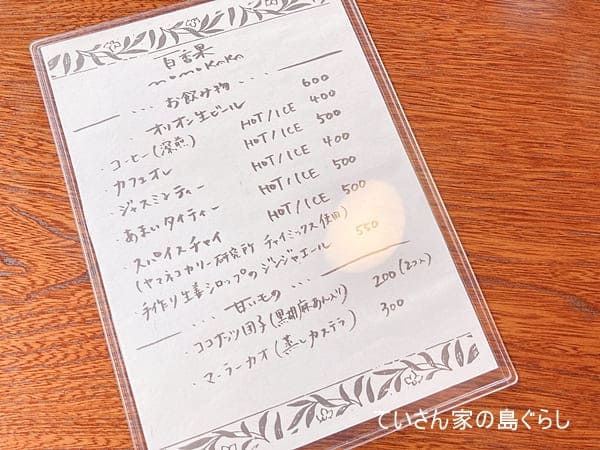 百喜果
momokaka
... お飲み物 ...
・オリオン生ビール 600
・コーヒー(深煎) HOT/ICE 400
・カフェオレ HOT/ICE 500
・ジャスミンティー HOT/ICE 400
・あまいタイティー HOT/ICE 500
・スパイスチャイ HOT/ICE 500
(ヤマネコカリー研究所 チャイミックス使用)
・手作り生姜シロップのジンジャエール 550
... 甘いもの ...
・ココナッツ団子(黒胡麻あん入り) 200(2つ入)
・マーラーカオ(蒸しカステラ) 300
ていさん家の島ぐらし